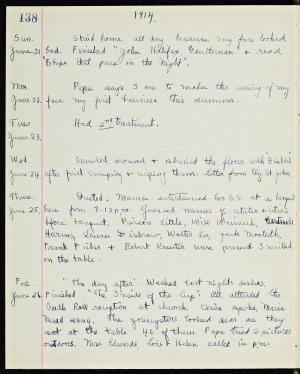 138
1914.
Sun. Staid home all day because my face looked
June 21 bad. Finished "John Halifax, Gentleman" & read
"Ships that pass in the Night".
Mon. Papa says I am to make the curing of my
June 22. face my first business this summer.
Tues. Had 2nd treatment.
June 23.
Wed. Crawled around & the floors with
June 24 after first sweeping & wiping them. Letter from St. John.
Thurs. Dusted. Mama entertained her S.S. at a banquet
June 25. here from 7-12 p.m. Guessed names of cities &
Pierson Little, Will
Laura Walter Jack
Frank & Robert were present. I waited
on the table.
Fri. "The day after". Washed last night's dishes.
June 26. Finished "The Inside of the Cup". All attended the
Cradle Roll reception at church. spoke, Marie
sang. The youngsters looked dear as they
sat at the table 40 of them. Papa tried 2 pictures
outdoors. Mrs Edwards, Lois & Helen called in p.m.